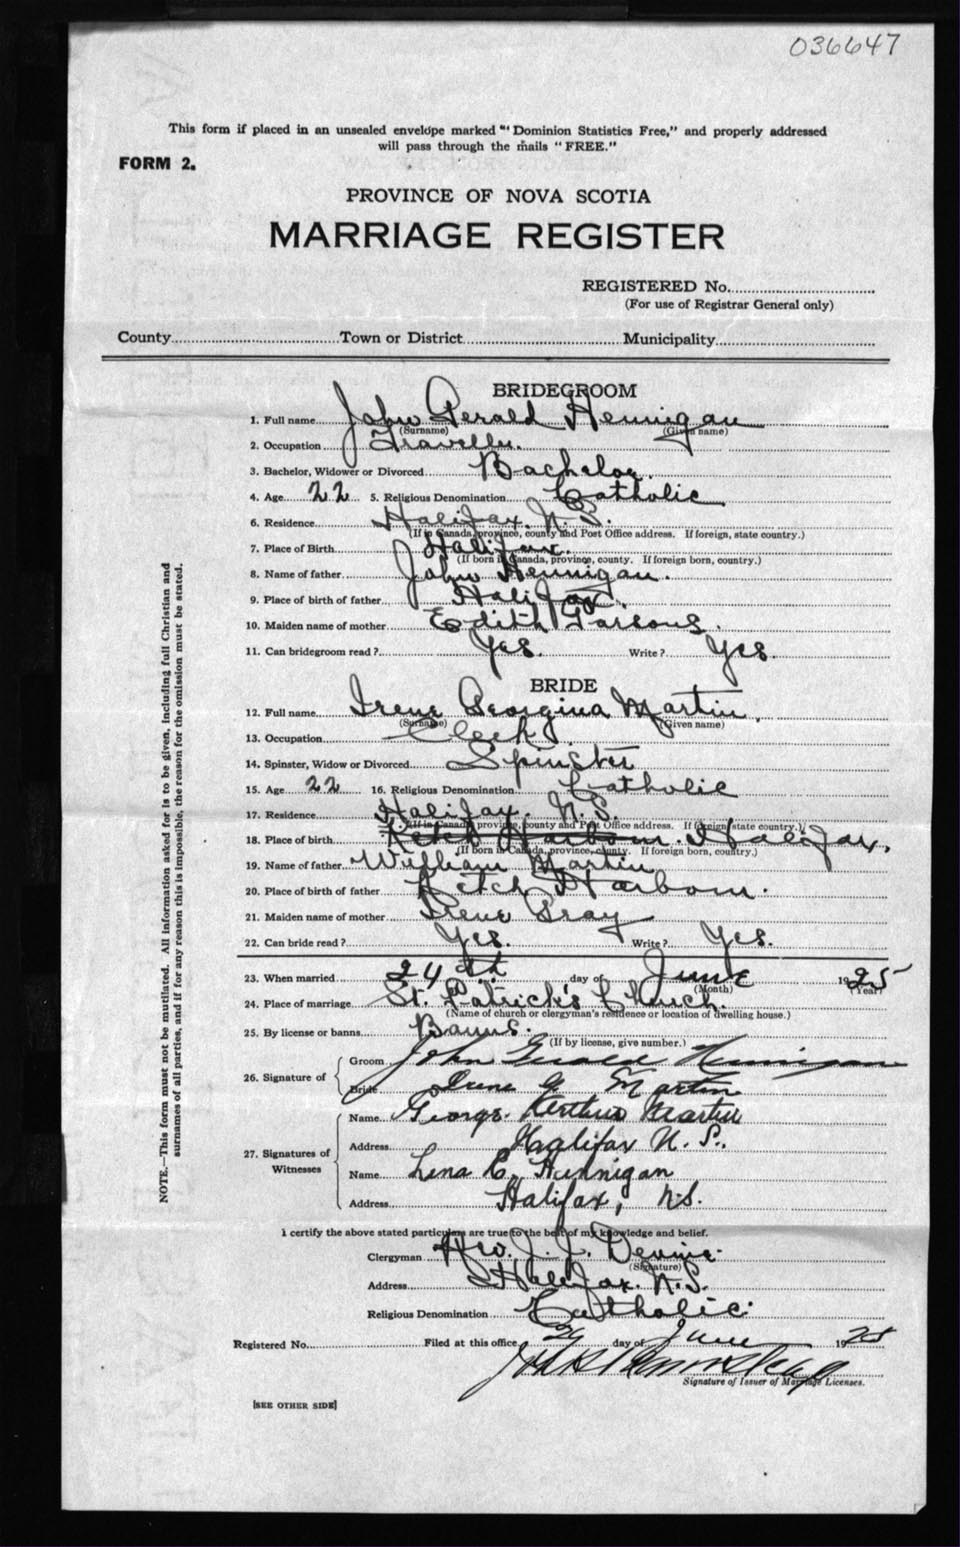 036647
This form if placed in an unsealed envelope marked "Dominion Statistics Free," and properly addressed
will pass through the mails "FREE."
FORM 2.
PROVINCE OF NOVA SCOTIA
MARRIAGE REGISTER
REGISTERED No.
(For use of Registrar General only)
County Town or District Municipality
BRIDEGROOM
1. Full name John Gerald Hennigan
(Surname) (Given name)
2. Occupation Traveller.
3. Bachelor, Widower or Divorced Bachelor.
4. Age 22 5. Religious Denomination Catholic
6. Residence Halifax. N. S.
(If in Canada, province, county and Post Office address. If foreign, state country.)
7. Place of Birth Halifax.
(If born in Canada, province, county. If foreign born, country.)
8. Name of father John Hennigan.
9. Place of birth of father Halifax.
10. Maiden name of mother Edith Parsons.
11. Can bridegroom read? Yes. Write? Yes.
BRIDE
12. Full name Irene Georgina Martin.
(Surname) (Given name)
13. Occupation Clerk
14. Spinster, Widow or Divorced Spinster
15. Age 22 16. Religious Denomination Catholic
17. Residence Halifax, N. S.
(If in Canada, province, county and Post Office address. If foreign, state country.)
18. Place of birth Ketch Harbour. Halifax.
(If born in Canada, province, county. If foreign born, country.)
19. Name of father William Martin
20. Place of birth of father Ketch Harbour.
21. Maiden name of mother Irene Gray
22. Can bride read? Yes. Write? Yes.
23. When married 24th day of June 1925
(Month) (Year)
24. Place of marriage St. Patrick's Church.
(Name of church or clergyman's residence or location of dwelling house.)
25. By license or banns Banns.
(If by license, give number.)
26. Signature of
Groom John Gerald Hennigan
Bride Irene G Martin
27. Signatures of Witnesses
Name George Martin
Address Halifax N. S.,
Name Lena C. Hennigan
Address Halifax, N.S.
I certify the above stated particulars are true to the best of my knowledge and belief.
Clergyman J. J. Devine.
(Signature)
Address Halifax. N.S.
Religious Denomination Catholic.
Registered No. Filed at this office 29 day of June 1925
Signature of Issuer of Marriage Licenses.
[SEE OTHER SIDE]
NOTE.—This form must not be mutilated. All information asked for is to be given, including full Christian and
surnames of all parties, and if for any reason this is impossible, the reason for the omission must be stated.